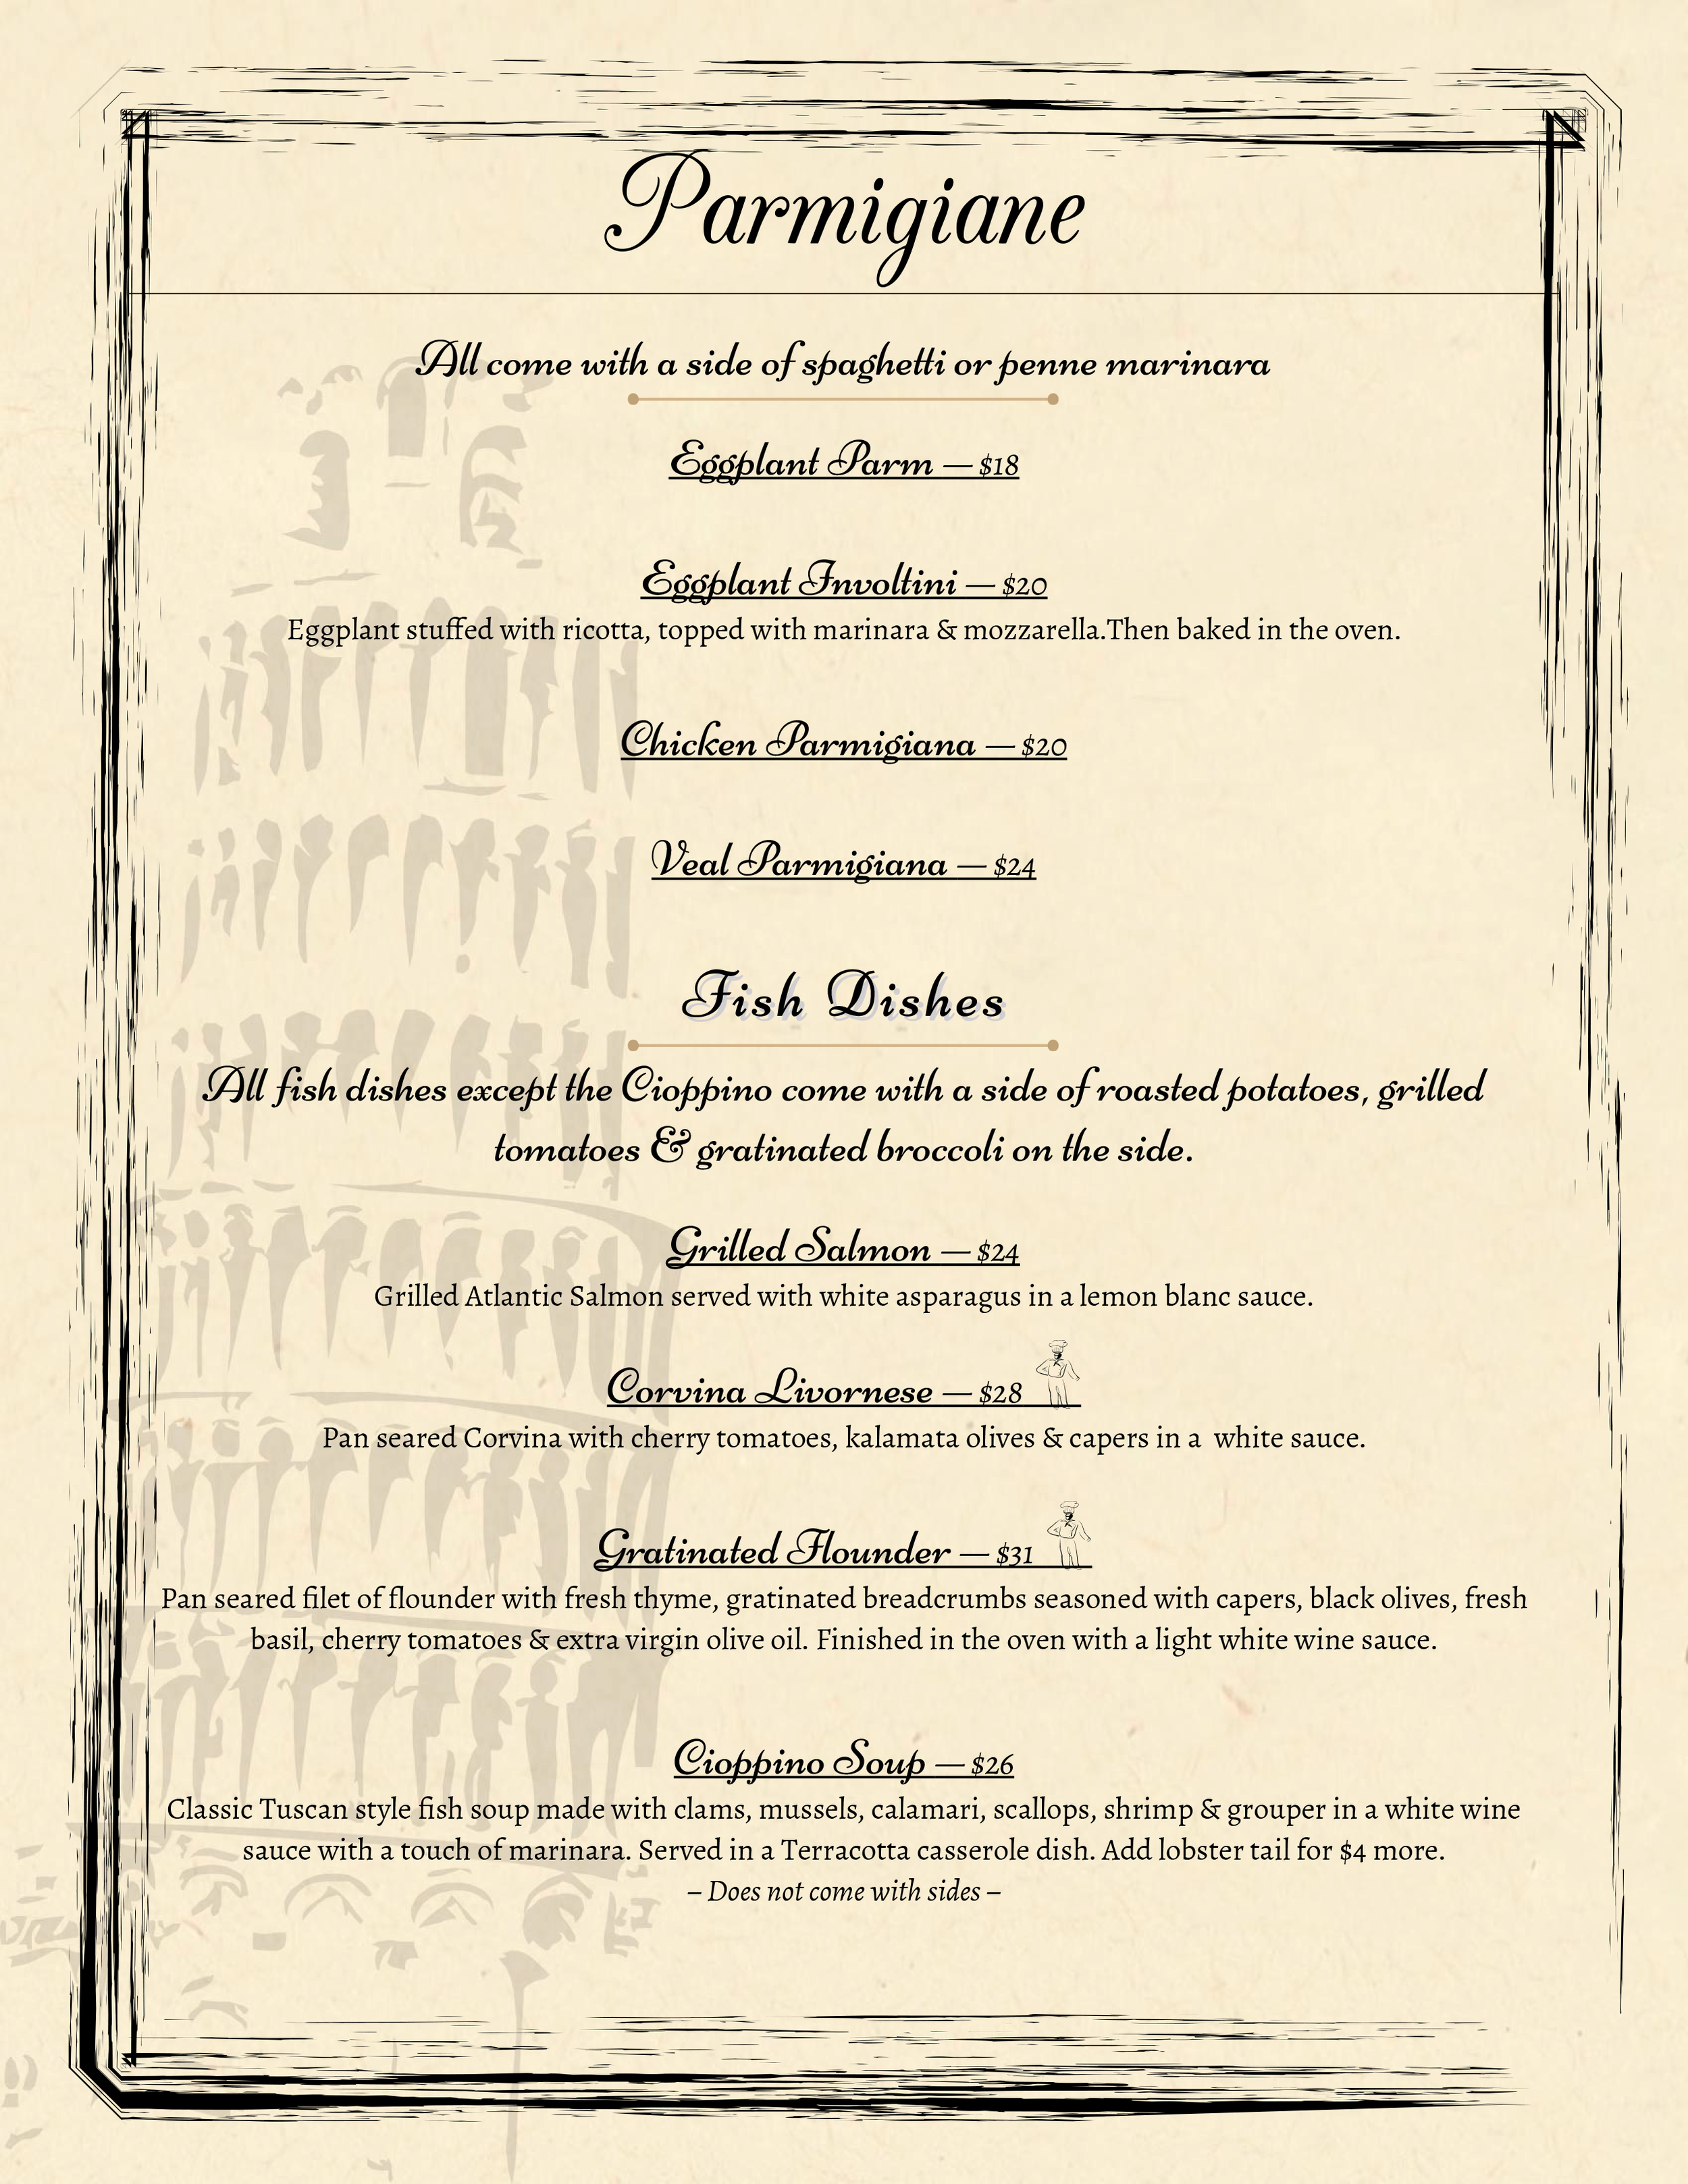 Parmigiane
All come with a side of spaghetti or penne marinara
Eggplant Parm — $18
Eggplant Involtini — $20
Eggplant stuffed with ricotta, topped with marinara & mozzarella.Then baked in the oven.
Chicken Parmigiana — $20
Veal Parmigiana — $24
Fish Dishes
All fish dishes except the Cioppino come with a side of roasted potatoes, grilled
tomatoes & gratinated broccoli on the side.
Grilled Salmon — $24
Grilled Atlantic Salmon served with white asparagus in a lemon blanc sauce.
Corvina Livornese — $28
Pan seared Corvina with cherry tomatoes, kalamata olives & capers in a  white sauce.
Gratinated Flounder — $31
Pan seared filet of flounder with fresh thyme, gratinated breadcrumbs seasoned with capers, black olives, fresh
basil, cherry tomatoes & extra virgin olive oil. Finished in the oven with a light white wine sauce.
Cioppino Soup — $26
Classic Tuscan style fish soup made with clams, mussels, calamari, scallops, shrimp & grouper in a white wine
sauce with a touch of marinara. Served in a Terracotta casserole dish. Add lobster tail for $4 more.
– Does not come with sides –